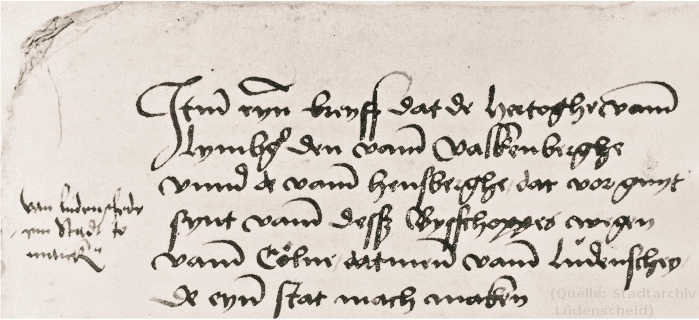 Item eyn breyff dat de hertoghe vam
Lymbg den vam Valkenberghe
vnnd de vam hensberghe dat vor gunt
synt vam dessz Bysschoppes wegen
vam Cölne datmen vam Lüdenschey
de eyn stat mach maken
van ludenschede
eyn Stadt to
maken
(Quelle: Stadtarchiv
Lüdenscheid)